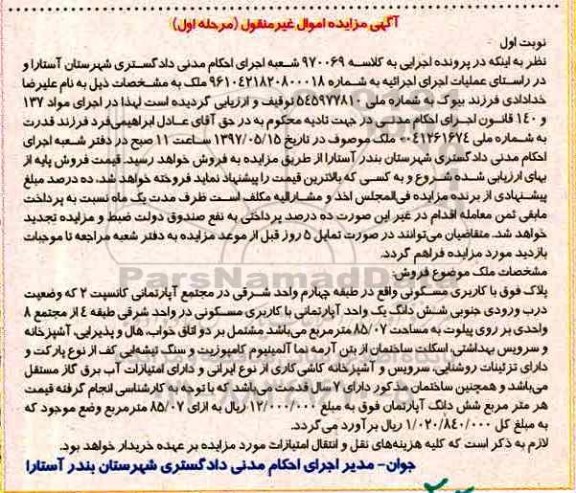 آگهی مزایده اموال غیرمنقول (مرحله اول)
نوبت اول
نظر به اینکه در پرونده اجرایی به کلاسه ۹۷۰۰۶۹ شعبه اجرای احکام مدنی دادگستری شهرستان آستارا و
در راستای عملیات اجرای اجرائیه به شماره ۹۶۱۰۴۲۱۸۲۰۸۰۰۰۱۸ ملک به مشخصات ذیل به نام علیرضا
خدادادی فرزند بیوک به شماره ملی ۵۴۵۹۷۷۸۱۰ توقیف و ارزیابی گردیده است لهذا در اجرای مواد ۱۳۷
و ۱۴۰ قانون اجرای احکام مدنی در جهت تادیه محکوم به در حق آقای عادل ابراهیمی‌فرد فرزند قدرت
به شماره ملی ۰۰۴۱۲۶۱۶۷۴ ملک موصوف در تاریخ ۱۳۹۷/۰۵/۱۵ ساعت ۱۱ صبح در دفتر شعبه اجرای
احکام مدنی دادگستری شهرستان بندر آستارا از طریق مزایده به فروش خواهد رسید. قیمت فروش پایه از
بهای ارزیابی شده شروع و به کسی که بالاترین قیمت را پیشنهاد نماید فروخته خواهد شد. ده درصد مبلغ
پیشنهادی از برنده مزایده فی‌المجلس اخذ و مشارالیه مکلف است ظرف مدت یک ماه نسبت به پرداخت
مابقی ثمن معامله اقدام در غیر این صورت ده درصد پرداختی به نفع صندوق دولت ضبط و مزایده تجدید
خواهد شد. متقاضیان می‌توانند در صورت تمایل ۵ روز قبل از موعد مزایده به دفتر شعبه مراجعه تا موجبات
بازدید مورد مزایده فراهم گردد.
مشخصات ملک موضوع فروش:
پلاک فوق با کاربری مسکونی واقع در طبقه چهارم واحد شرقی در مجتمع آپارتمانی کانسپت ۲ که وضعیت
درب ورودی جنوبی شش دانگ یک واحد آپارتمانی با کاربری مسکونی در واحد شرقی طبقه ٤ از مجتمع ۸
واحدی بر روی پیلوت به مساحت ۸۵/۰۷ مترمربع می‌باشد مشتمل بر دو اتاق خواب، هال و پذیرایی، آشپزخانه
و سرویس بهداشتی، اسکلت ساختمان از بتن آرمه نما آلمینیوم کامپوزیت و سنگ تیشه‌ایی کف از نوع پارکت و
دارای تزئینات روشنایی، سرویس و آشپزخانه کاشی کاری از نوع ایرانی و دارای امتیازات آب برق گاز مستقل
می‌باشد و همچنین ساختمان مذکور دارای ۷ سال قدمت می‌باشد که با توجه به کارشناسی انجام گرفته قیمت
هر متر مربع شش دانگ آپارتمان فوق به مبلغ ۱۲/۰۰۰/۰۰۰ ریال به ازای ۸۵/۰۷ مترمربع وضع موجود که
به مبلغ کل ۱/۰۲۰/۸۴۰/۰۰۰ ریال برآورد می‌گردد.
لازم به ذکر است که کلیه هزینه‌های نقل و انتقال امتیازات مورد مزایده بر عهده خریدار خواهد بود.
جوان- مدیر اجرای احکام مدنی دادگستری شهرستان بندر آستارا
ParsNamadData